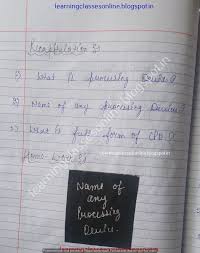 learningclassesonline.blogspot.in
Recapitulation :-
1) What is processing Device?
2) Name of any processing Device?
3) What is full form of CPU?
Home-work :-
learningclassesonline.blogspot.in
Name of
any
Processing
Device.